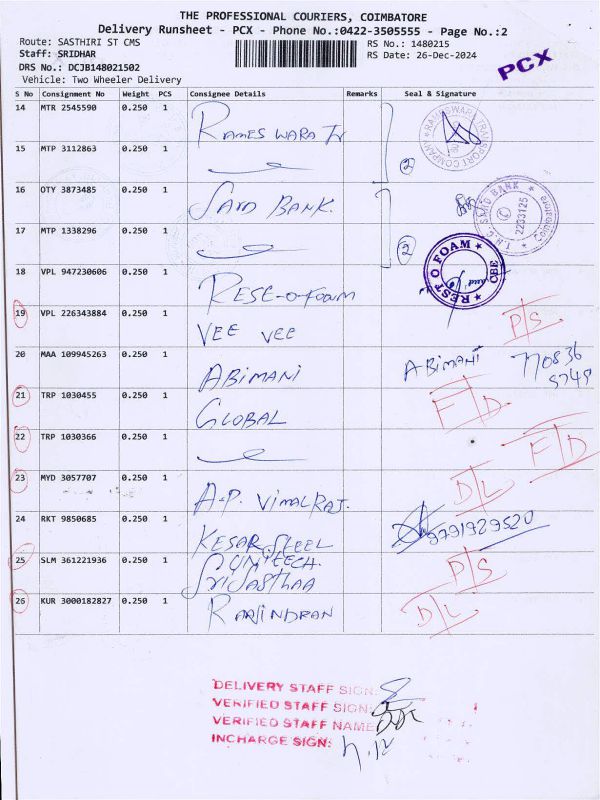 THE PROFESSIONAL COURIERS, COIMBATORE
Delivery Runsheet - PCX - Phone No.:0422-3505555 - Page No.:2
Route: SASTHIRI ST CMS
RS No.: 1480215
Staff: SRIDHAR
RS Date: 26-Dec-2024
PCX
DRS No.: DCJB148021502
Vehicle: Two Wheeler Delivery
S No Consignment No Weight PCS Consignee Details Remarks Seal & Signature
14 MTR 2545590 0.250 1 RAMESWARA Tr
15 MTP 3112863 0.250 1 2
16 OTY 3873485 0.250 1 SAND BANK.
17 MTP 1338296 0.250 1 2
REST O FOAM CBE
18 VPL 947230606 0.250 1 RESE-O-FOAM
19 VPL 226343884 0.250 1 VEE VEE P/S
20 MAA 109945263 0.250 1 ABIMANI ABIMANI 770836
21 TRP 1030455 0.250 1 GLOBAL F/D
22 TRP 1030366 0.250 1 F/D
23 MYD 3057707 0.250 1 A.P. VIMALRAJ. D/L
24 RKT 9850685 0.250 1 KESAR STEEL 9791929520
25 SLM 361221936 0.250 1 SRI SASTHAA P/S
26 KUR 3000182827 0.250 1 RAAJINDRAN D/L
DELIVERY STAFF SIGN:
VERIFIED STAFF SIGN:
VERIFIED STAFF NAME:
INCHARGE SIGN: